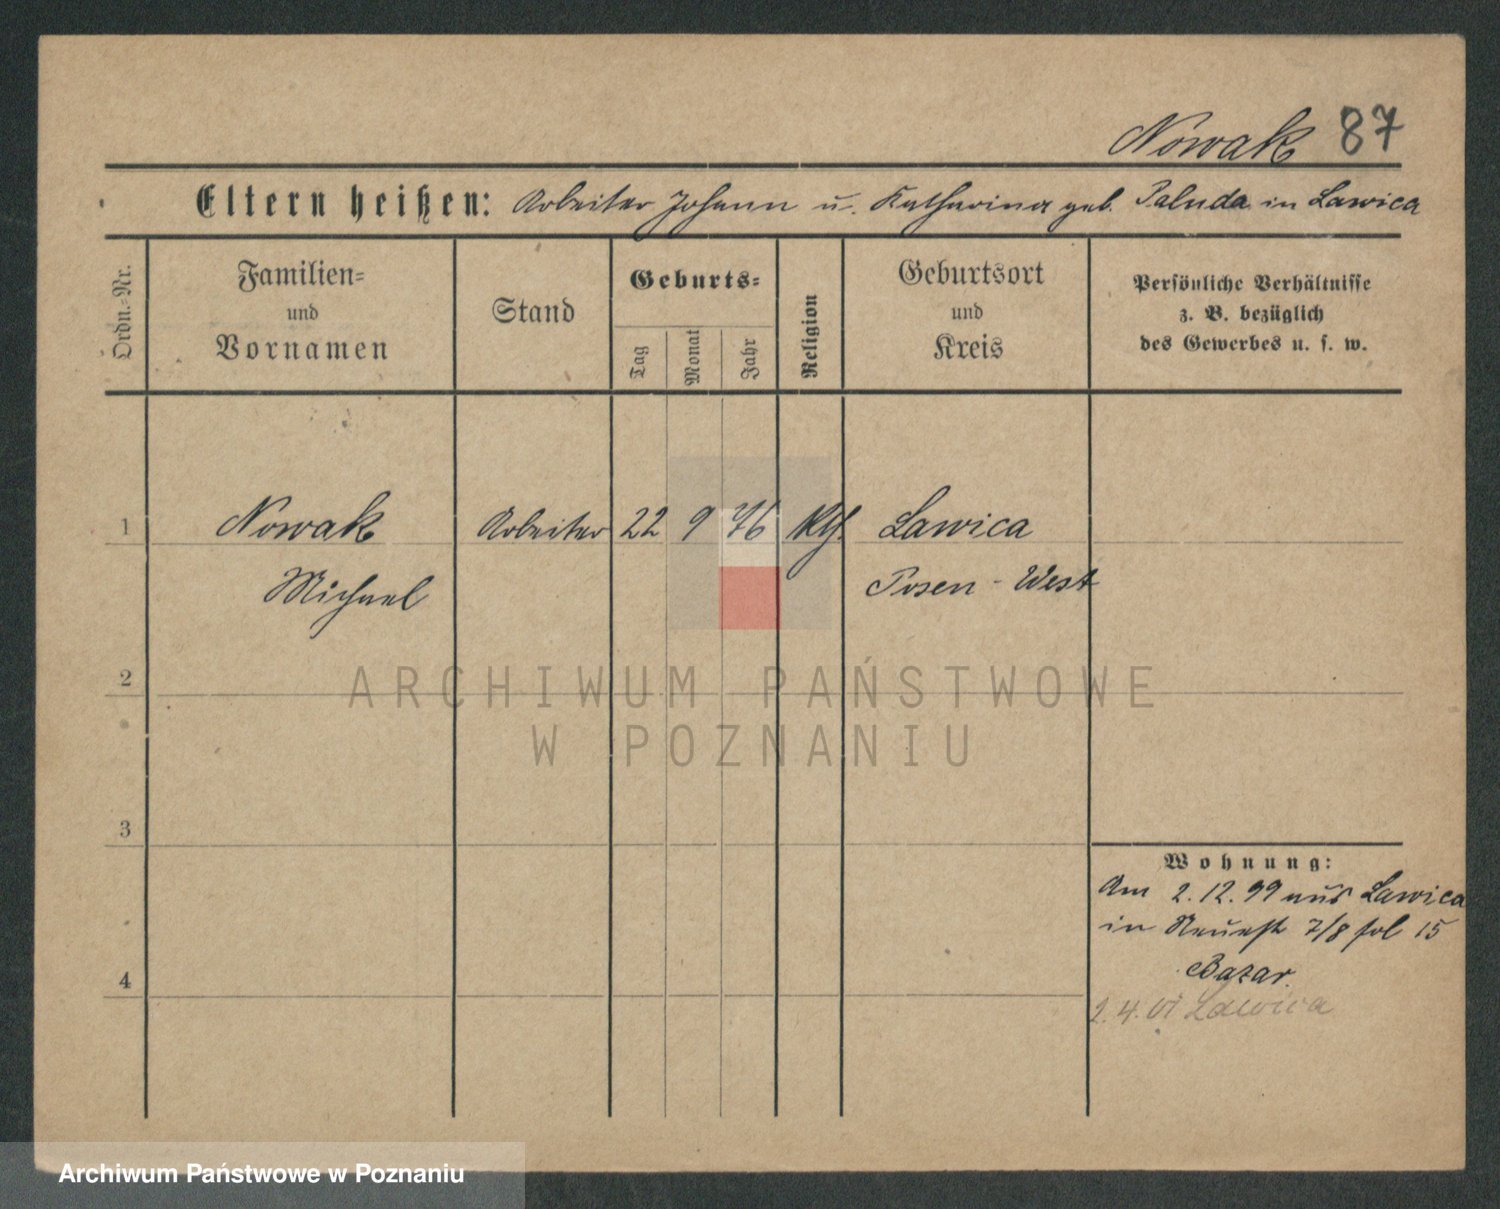 Nowak 87
Eltern heißen: Arbeiter Johann u. Katharina geb. Paluda in Lawica
Ordn.-Nr.
Familien-
und
Vornamen
Stand
Geburts-
Tag
Monat
Jahr
Religion
Geburtsort
und
Kreis
Persönliche Verhältnisse
z. B. bezüglich
des Gewerbes u. s. w.
1 Nowak Arbeiter 22 9 76 kth. Lawica
Michael Posen - West
2
ARCHIWUM PAŃSTWOWE
W POZNANIU
3
Wohnung:
Am 2.12.99 aus Lawica
in Neuest 7/8 fol 15
4 Bazar.
2.4.01 Lawica
Archiwum Państwowe w Poznaniu